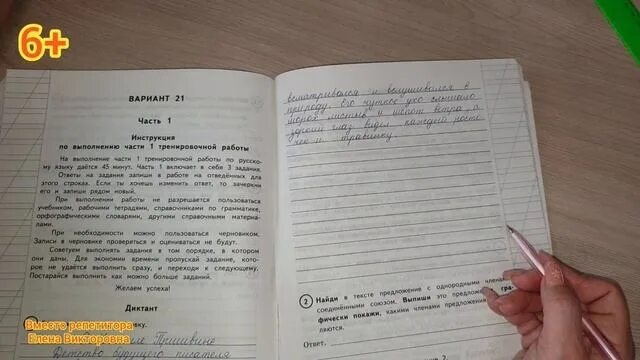 6+
ВАРИАНТ 21
Часть 1
Инструкция
по выполнению части 1 тренировочной работы
На выполнение части 1 тренировочной работы по русско-
му языку даётся 45 минут. Часть 1 включает в себя 3 задания.
Ответы на задания запиши в работе на отведённых для
этого строках. Если ты хочешь изменить ответ, то зачеркни
его и запиши рядом новый.
При выполнении работы не разрешается пользоваться
учебником, рабочими тетрадями, справочниками по грамматике,
орфографическими словарями, другими справочными материа-
лами.
При необходимости можно пользоваться черновиком.
Записи в черновике проверяться и оцениваться не будут.
Советуем выполнять задания в том порядке, в котором
они даны. Для экономии времени пропускай задание, кото-
рое не удаётся выполнить сразу, и переходи к следующему.
Постарайся выполнить как можно больше заданий.
Желаем успеха!
Диктант
Пришвине
Детство будущего писателя
Вместо репетитора
Елена Викторовна
всматривался и вслушивался в
природу. Его чуткое ухо слышало
шорох листьев и шёпот ветра, а
зоркий глаз видел каждый росто
чек и травинку.
2 Найди в тексте предложение с однородными членами,
соединёнными союзом. Выпиши это предложение и гра-
фически покажи, какими членами предложения
ляются.
Ответ.